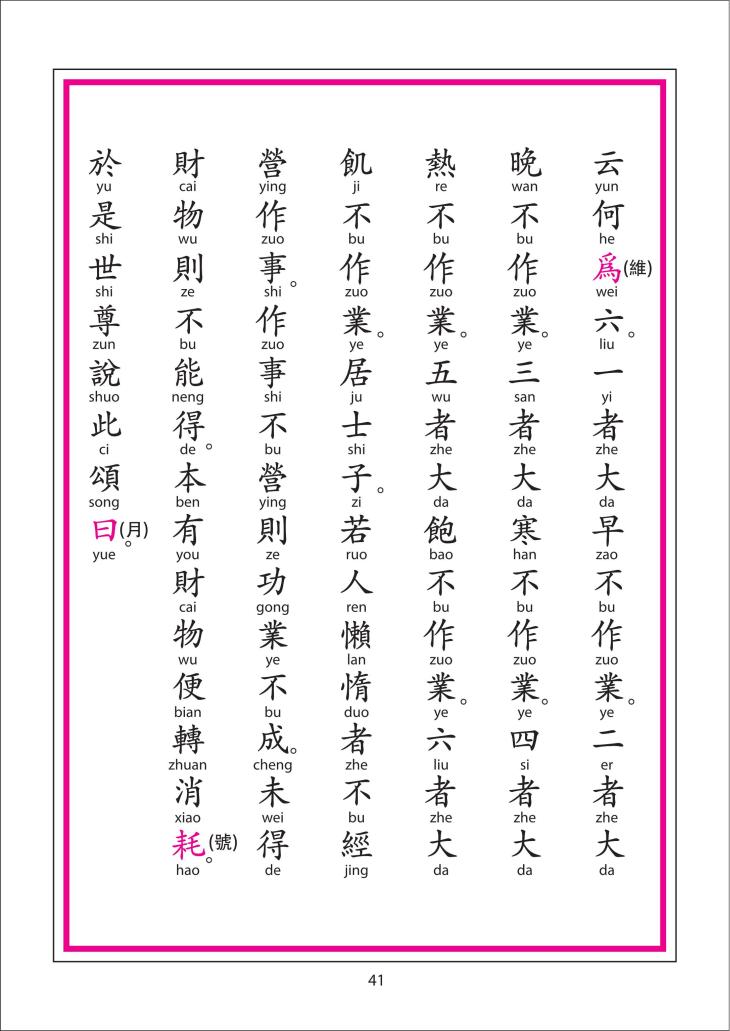 云何爲(維)六。一者大早不作業。二者大
yun he wei liu yi zhe da zao bu zuo ye er zhe da
晚不作業。三者大寒不作業。四者大
wan bu zuo ye san zhe da han bu zuo ye si zhe da
熱不作業。五者大飽不作業。六者大
re bu zuo ye wu zhe da bao bu zuo ye liu zhe da
飢不作業。居士子。若人懶惰者不經
ji bu zuo ye ju shi zi ruo ren lan duo zhe bu jing
營作事。作事不營則功業不成。未得
ying zuo shi zuo shi bu ying ze gong ye bu cheng wei de
財物則不能得。本有財物便轉消耗(號)。
cai wu ze bu neng de ben you cai wu bian zhuan xiao hao
於是世尊說此頌曰(月)。
yu shi shi zun shuo ci song yue
41